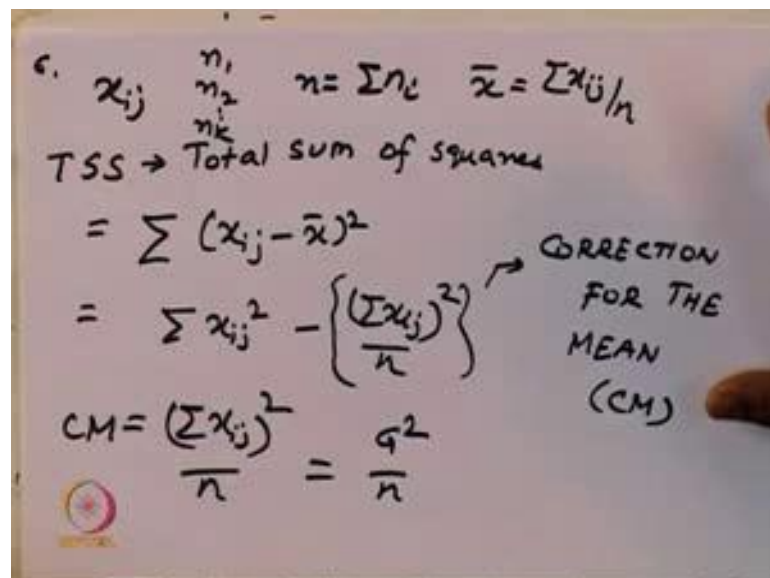 6. xij n1 n2 nk n = Σni x̄ = Σxij/n
TSS → Total sum of squares
= Σ (xij - x̄)²
= Σ xij² - {(Σxij)²/n} → CORRECTION FOR THE MEAN (CM)
CM = (Σxij)²/n = G²/n